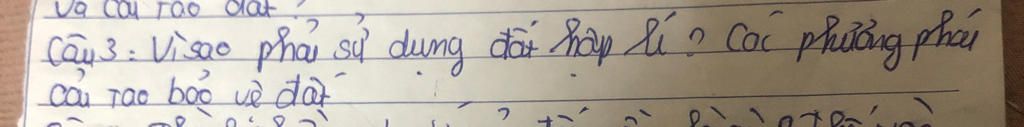 và cải tạo đất.
Câu 3: Vì sao phải sử dụng đất hợp lí? Các phương pháp
cải tạo bảo vệ đất